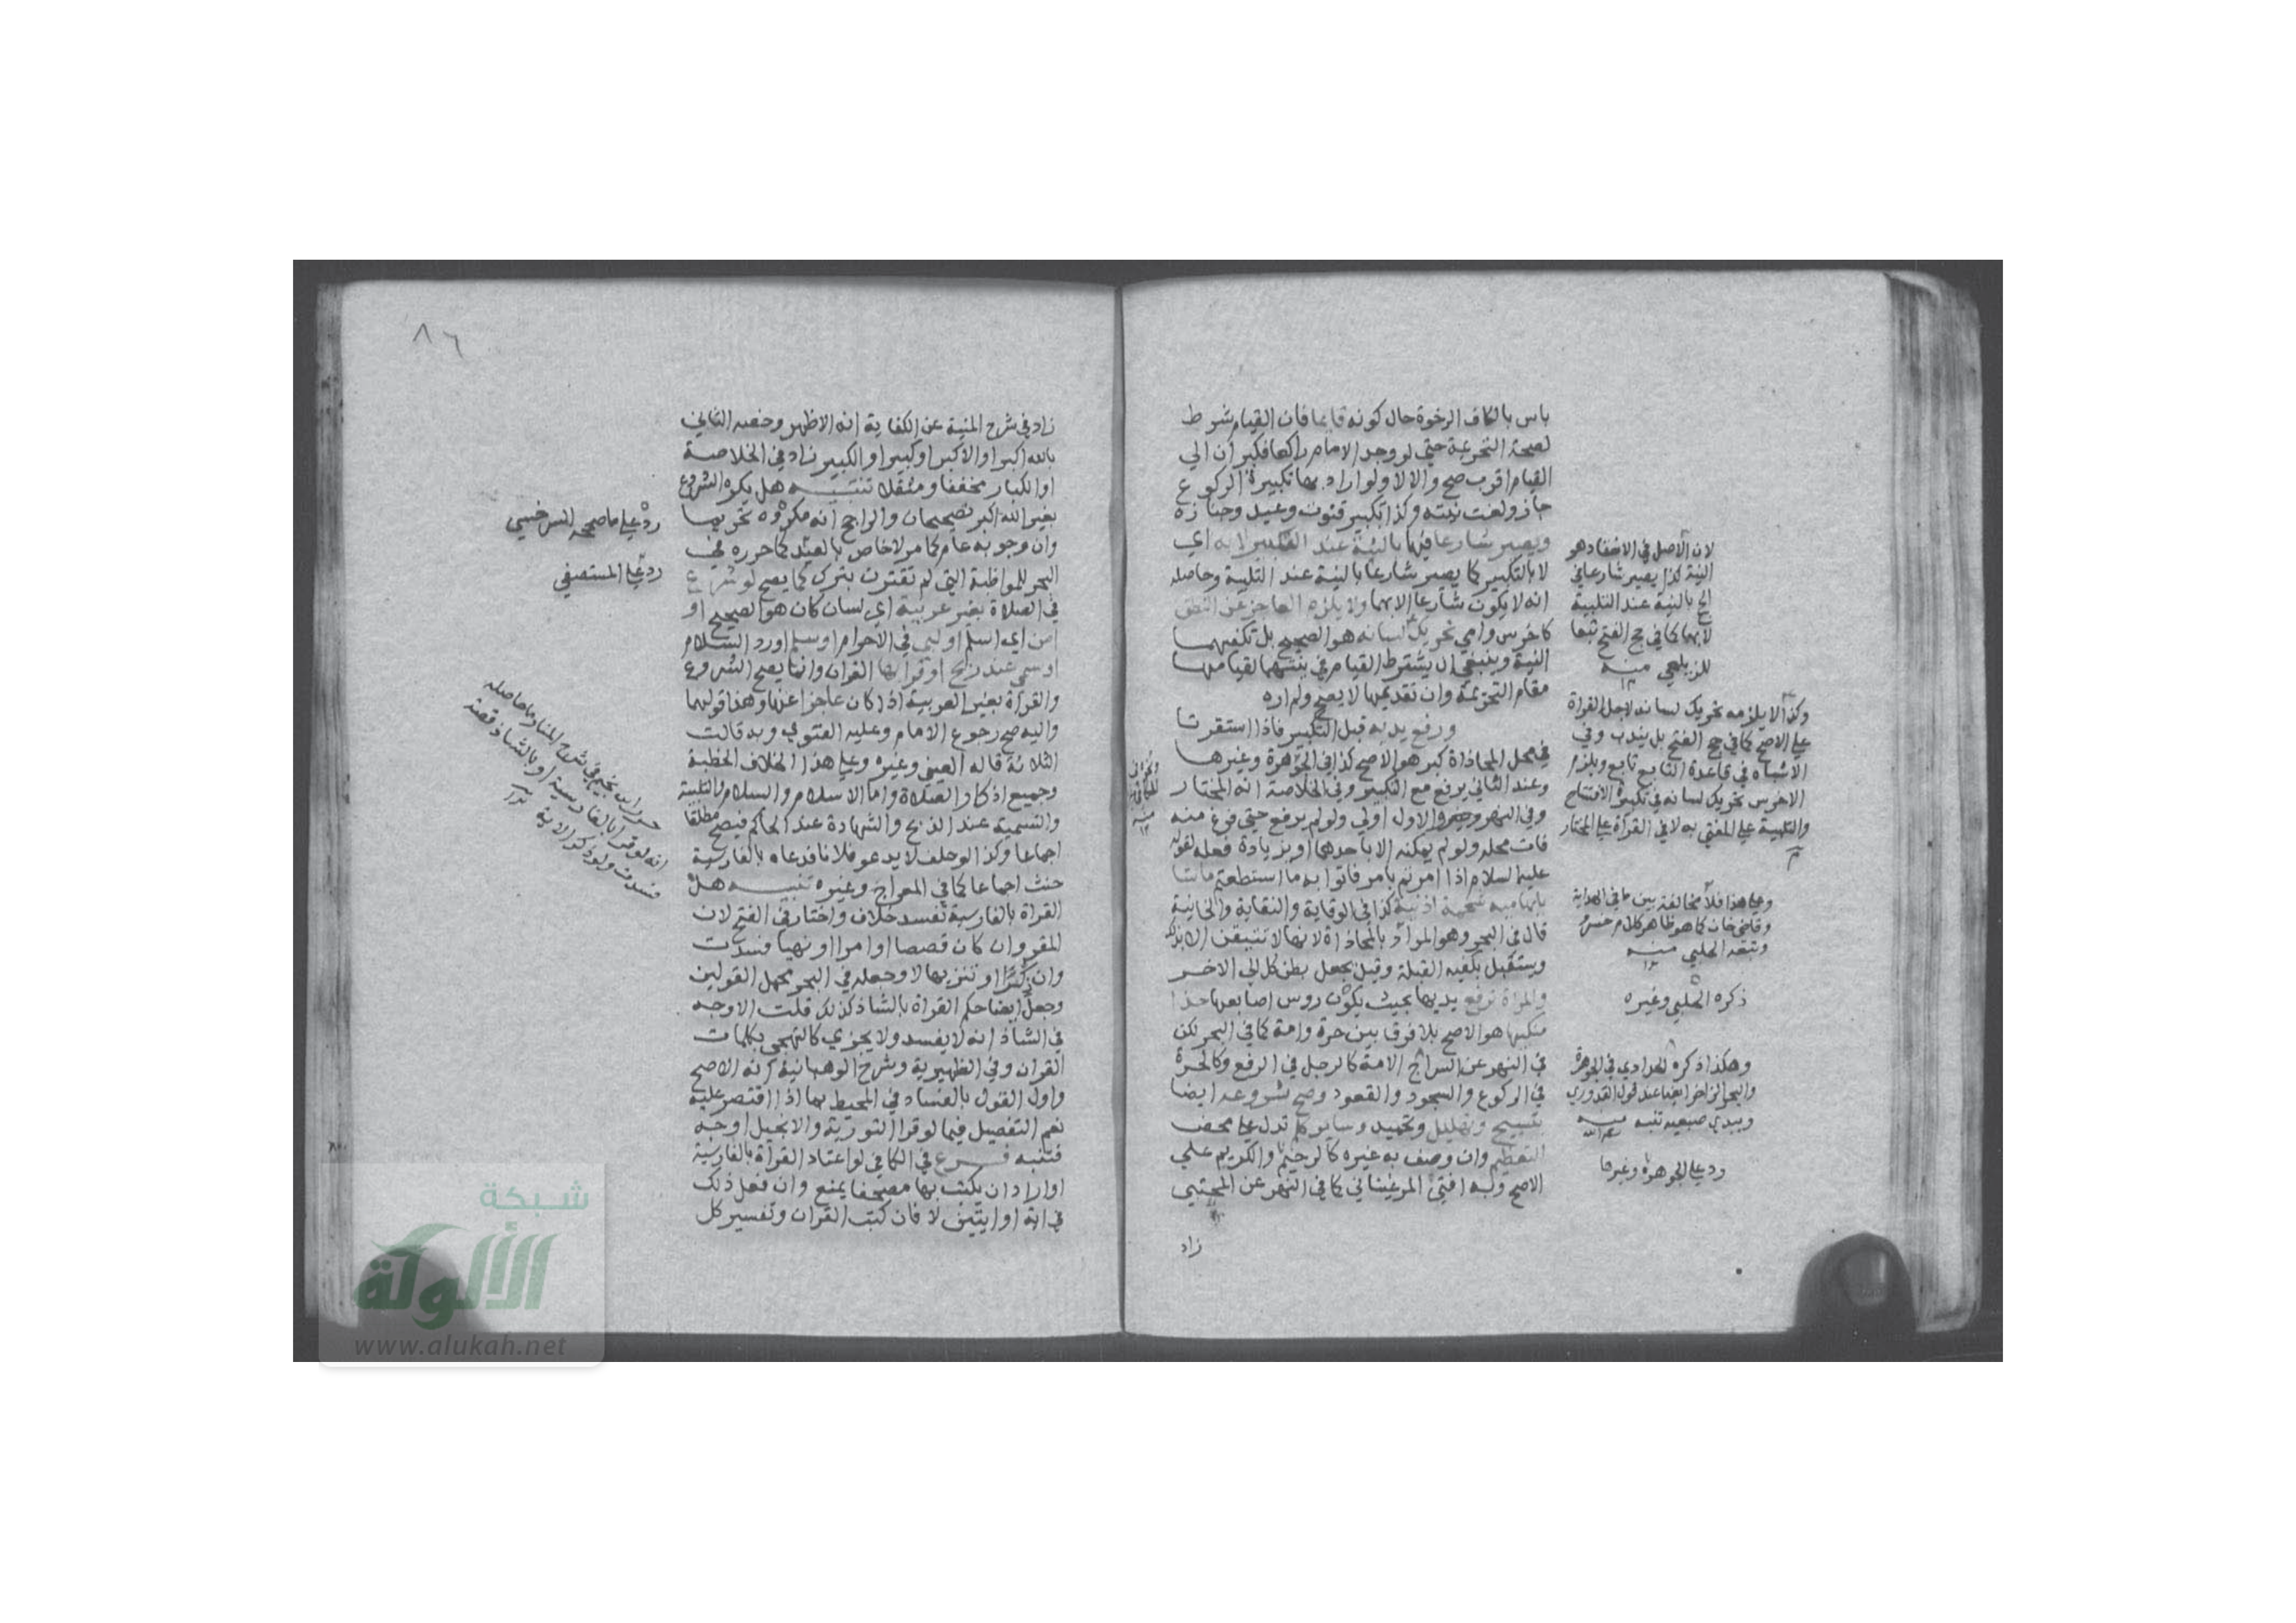 باس بالكاف الرخوة حال كونه قايما فان القيام شرط
لصحة التحريمة حتي لو وجد الامام راكعا فكبر ان الي
القيام اقرب صح والا لا ولو اراد بها تكبيرة الركوع
جاز ولغت نيته وكذا تكبير قنوت وعيد وجنازه
ويصير شارعا فيها بالنية عند التكبير لا به اي
لا بالتكبير كما يصير شارعا بالنية عند التلبية وحاصله
انه لا يكون شارعا الا بهما ولا يلزم العاجز عن النطق
كاخرس وامي تحريك لسانه هو الصحيح بل تكفيهما
النية وينبغي ان يشترط القيام في نيتهما لقيامها
مقام التحريمة وان تقديمها لا يصح ولم اره
ورفع يديه قبل التكبير فاذا استقرتا
في محل المحاذاة كبر هو الاصح كذا في الجوهرة وغيرها
وعند الثاني يرفع مع التكبير وفي الخلاصة انه المختار
وفي النهر والاول اولي ولو لم يرفع حتي فرغ منه
فات محله ولو لم يمكنه الا باحدهما او بزيادة فعله لقوله
عليه السلام اذا امرتم بامر فاتوا به ما استطعتم ماسا
بابهاميه شحمة اذنيه كذا في الوقاية والنقاية والخانية
قال في البحر وهو المراد بالمحاذاة لانها لا تتيقن الا بذلك
ويستقبل بكفيه القبلة وقيل يجعل بطن كل الي الاخر
والمراة ترفع يديها بحيث يكون روس اصابعها حذا
منكبيها هو الاصح بلا فرق بين حرة وامة كما في البحر لكن
في النهر عن السراج الامة كالرجل في الرفع وكالحرة
في الركوع والسجود والقعود وصح شروعه ايضا
بتسبيح وتهليل وتحميد وساير كلم تدل علي محض
التعظيم وان وصف به غيره كالرحيم والكريم علي
الاصح وبه افتي المرغيناني كما في النهر عن المجتبي
زاد
لان الاصل في الانعقاد هو
النية لذا يصير شارعا في
الحج بالنية عند التلبية
لا بها كما في حج الفتح تبعا
للزيلعي منه
وكذا لا يلزمه تحريك لسانه لاجل القراة
علي الاصح كما في حج الفتح بل يندب وفي
الاشباه في قاعدة التابع تابع ويلزم
الاخرس تحريك لسانه في تكبيرة الافتتاح
والتلبية علي المفتي به لا في القراة علي المختار
وعلي هذا فلا مخالفة بين ما في الهداية
وقاضي خان كما هو ظاهر كلام خسرو
وتبعه الحلبي منه
ذكره الحلبي وغيره
وهكذا ذكره الحدادي في الجوهرة
والبحر الزاخر ايضا عند قول القدوري
ويبدي ضبعيه تنبه منه
رد علي الجوهرة وغيرها
٨٦
زاد في شرح المنية عن الكفاية انه الاظهر وخصه الثاني
بالله اكبر او الاكبر او كبير او الكبير زاد في الخلاصة
او الكبار مخففا ومثقلا تنبيه هل يكره الشروع
بغير الله اكبر تصحيحان والراجح انه مكروه تحريما
وان وجوبه عام كما مر لا خاص بالعيد كما حرره في
البحر للمواظبة التي لم تقترن بترك كما يصح لو شرع
في الصلاة بغير عربية اي لسان كان هو الصحيح او
امن اي اسلم او لبي في الاحرام او سلم او رد السلام
او سمي عند ذبح او قرا بها القران وانما يصح الشروع
والقراة بغير العربية اذا كان عاجزا عنها وهذا قولهما
واليه صح رجوع الامام وعليه الفتوي وبه قالت
الثلاثة قاله العيني وغيره وعلي هذا الخلاف الخطبة
وجميع اذكار الصلاة واما الاسلام والسلام والتلبية
والتسمية عند الذبح والشهادة عند الحاكم فيصح مطلقا
اجماعا وكذا لو حلف لا يدعو فلانا فدعاه بالفارسية
حنث اجماعا كما في المعراج وغيره تنبيه هل
القراة بالفارسية تفسد خلاف واختار في الفتح لان
المقرو ان كان قصصا او امرا او نهيا فسدت
وان ذكرا او تنزيها لا وجعله في البحر محمل القولين
وجعل ايضا حكم القراة بالشاذ كذلك قلت الاوجه
في الشاذ انه لا يفسد ولا يجزي كالتهجي بكلمات
القران وفي الظهيرية وشرح الوهبانية انه الاصح
واول القول بالفساد في المحيط بما اذا اقتصر عليه
نعم التفصيل فيما لو قرا التورية والانجيل اوجه
فتنبه فرع في الكافي لو اعتاد القراة بالفارسية
او اراد ان يكتب بها مصحفا يمنع وان فعل ذلك
في اية او ايتين لا فان كتب القران وتفسير كل
رد علي ما صححه السرخسي
رد علي المستصفي
حرر ابن نجيم في شرح المنار ما حاصله
انه لو قرا بالفارسية او بالشاذ قصة
فسدت ولو ذكرا لا
شبكة
الألوكة
www.alukah.net